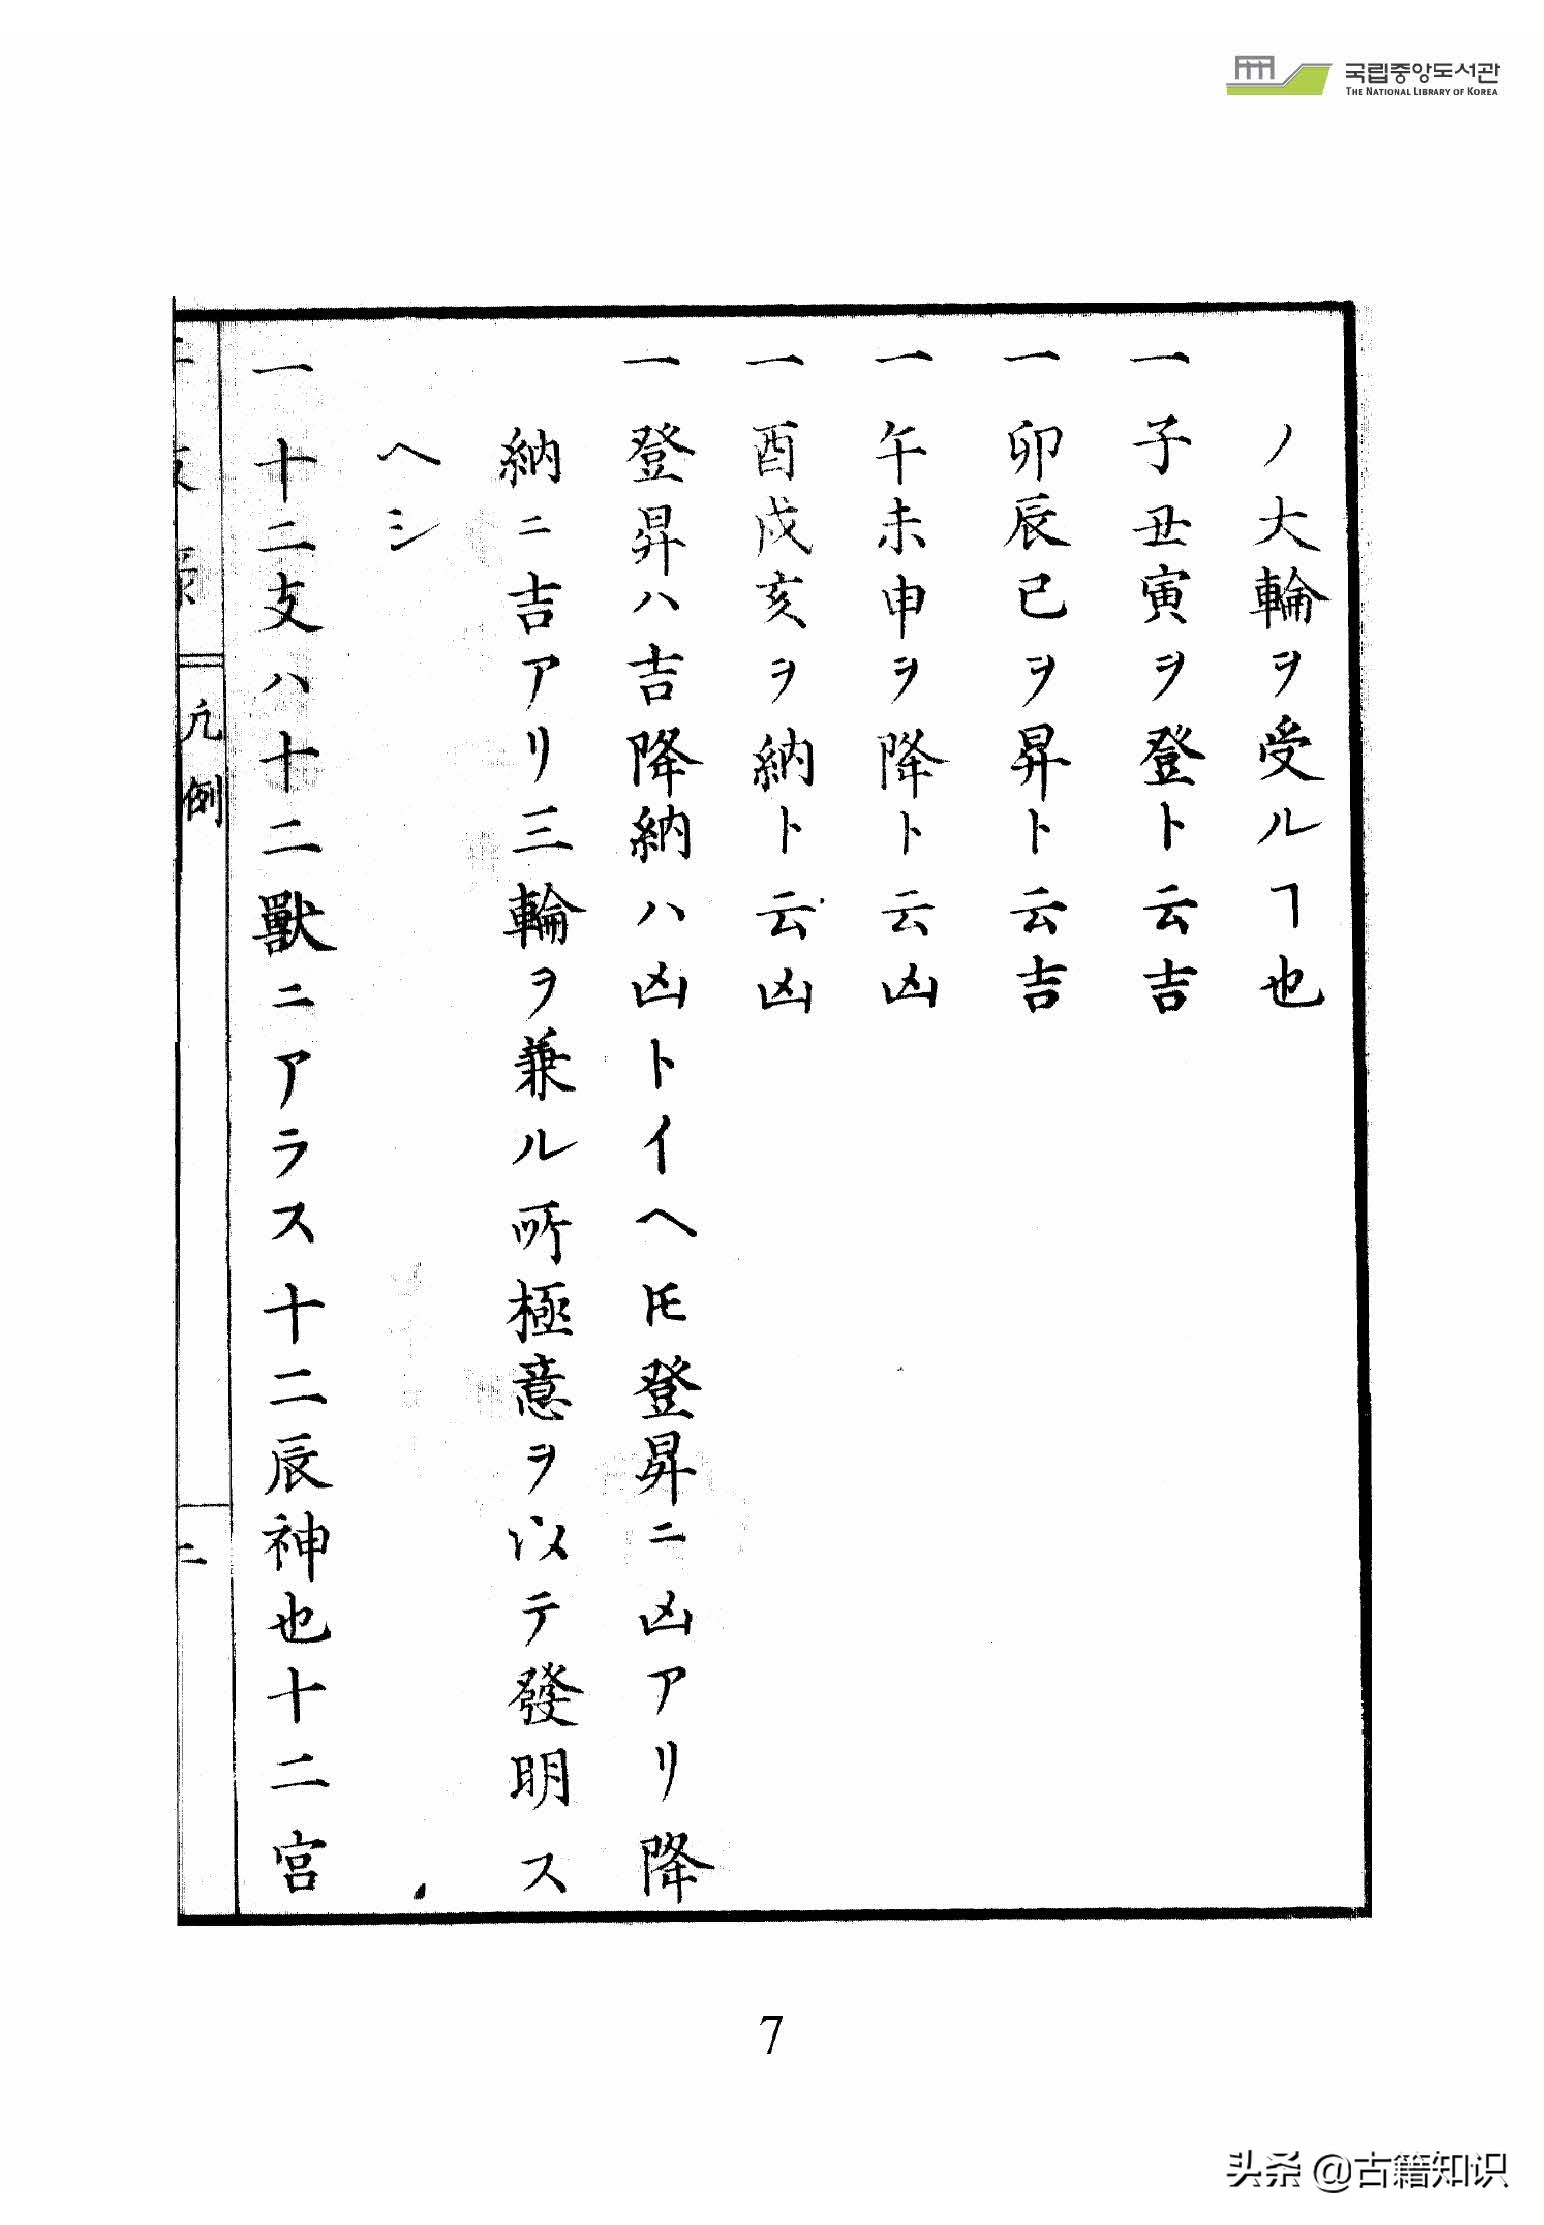 국립중앙도서관
THE NATIONAL LIBRARY OF KOREA
ノ大輪ヲ受ルヿ也
一 子丑寅ヲ登ト云吉
一 卯辰巳ヲ昇ト云吉
一 午未申ヲ降ト云凶
一 酉戌亥ヲ納ト云凶
一 登昇ハ吉降納ハ凶トイヘ𪜈登昇ニ凶アリ降
納ニ吉アリ三輪ヲ兼ル所極意ヲ以テ發明ス
ヘシ
一 十二支ハ十二獸ニアラス十二辰神也十二宮
凢例
二
7
头条 @古籍知识